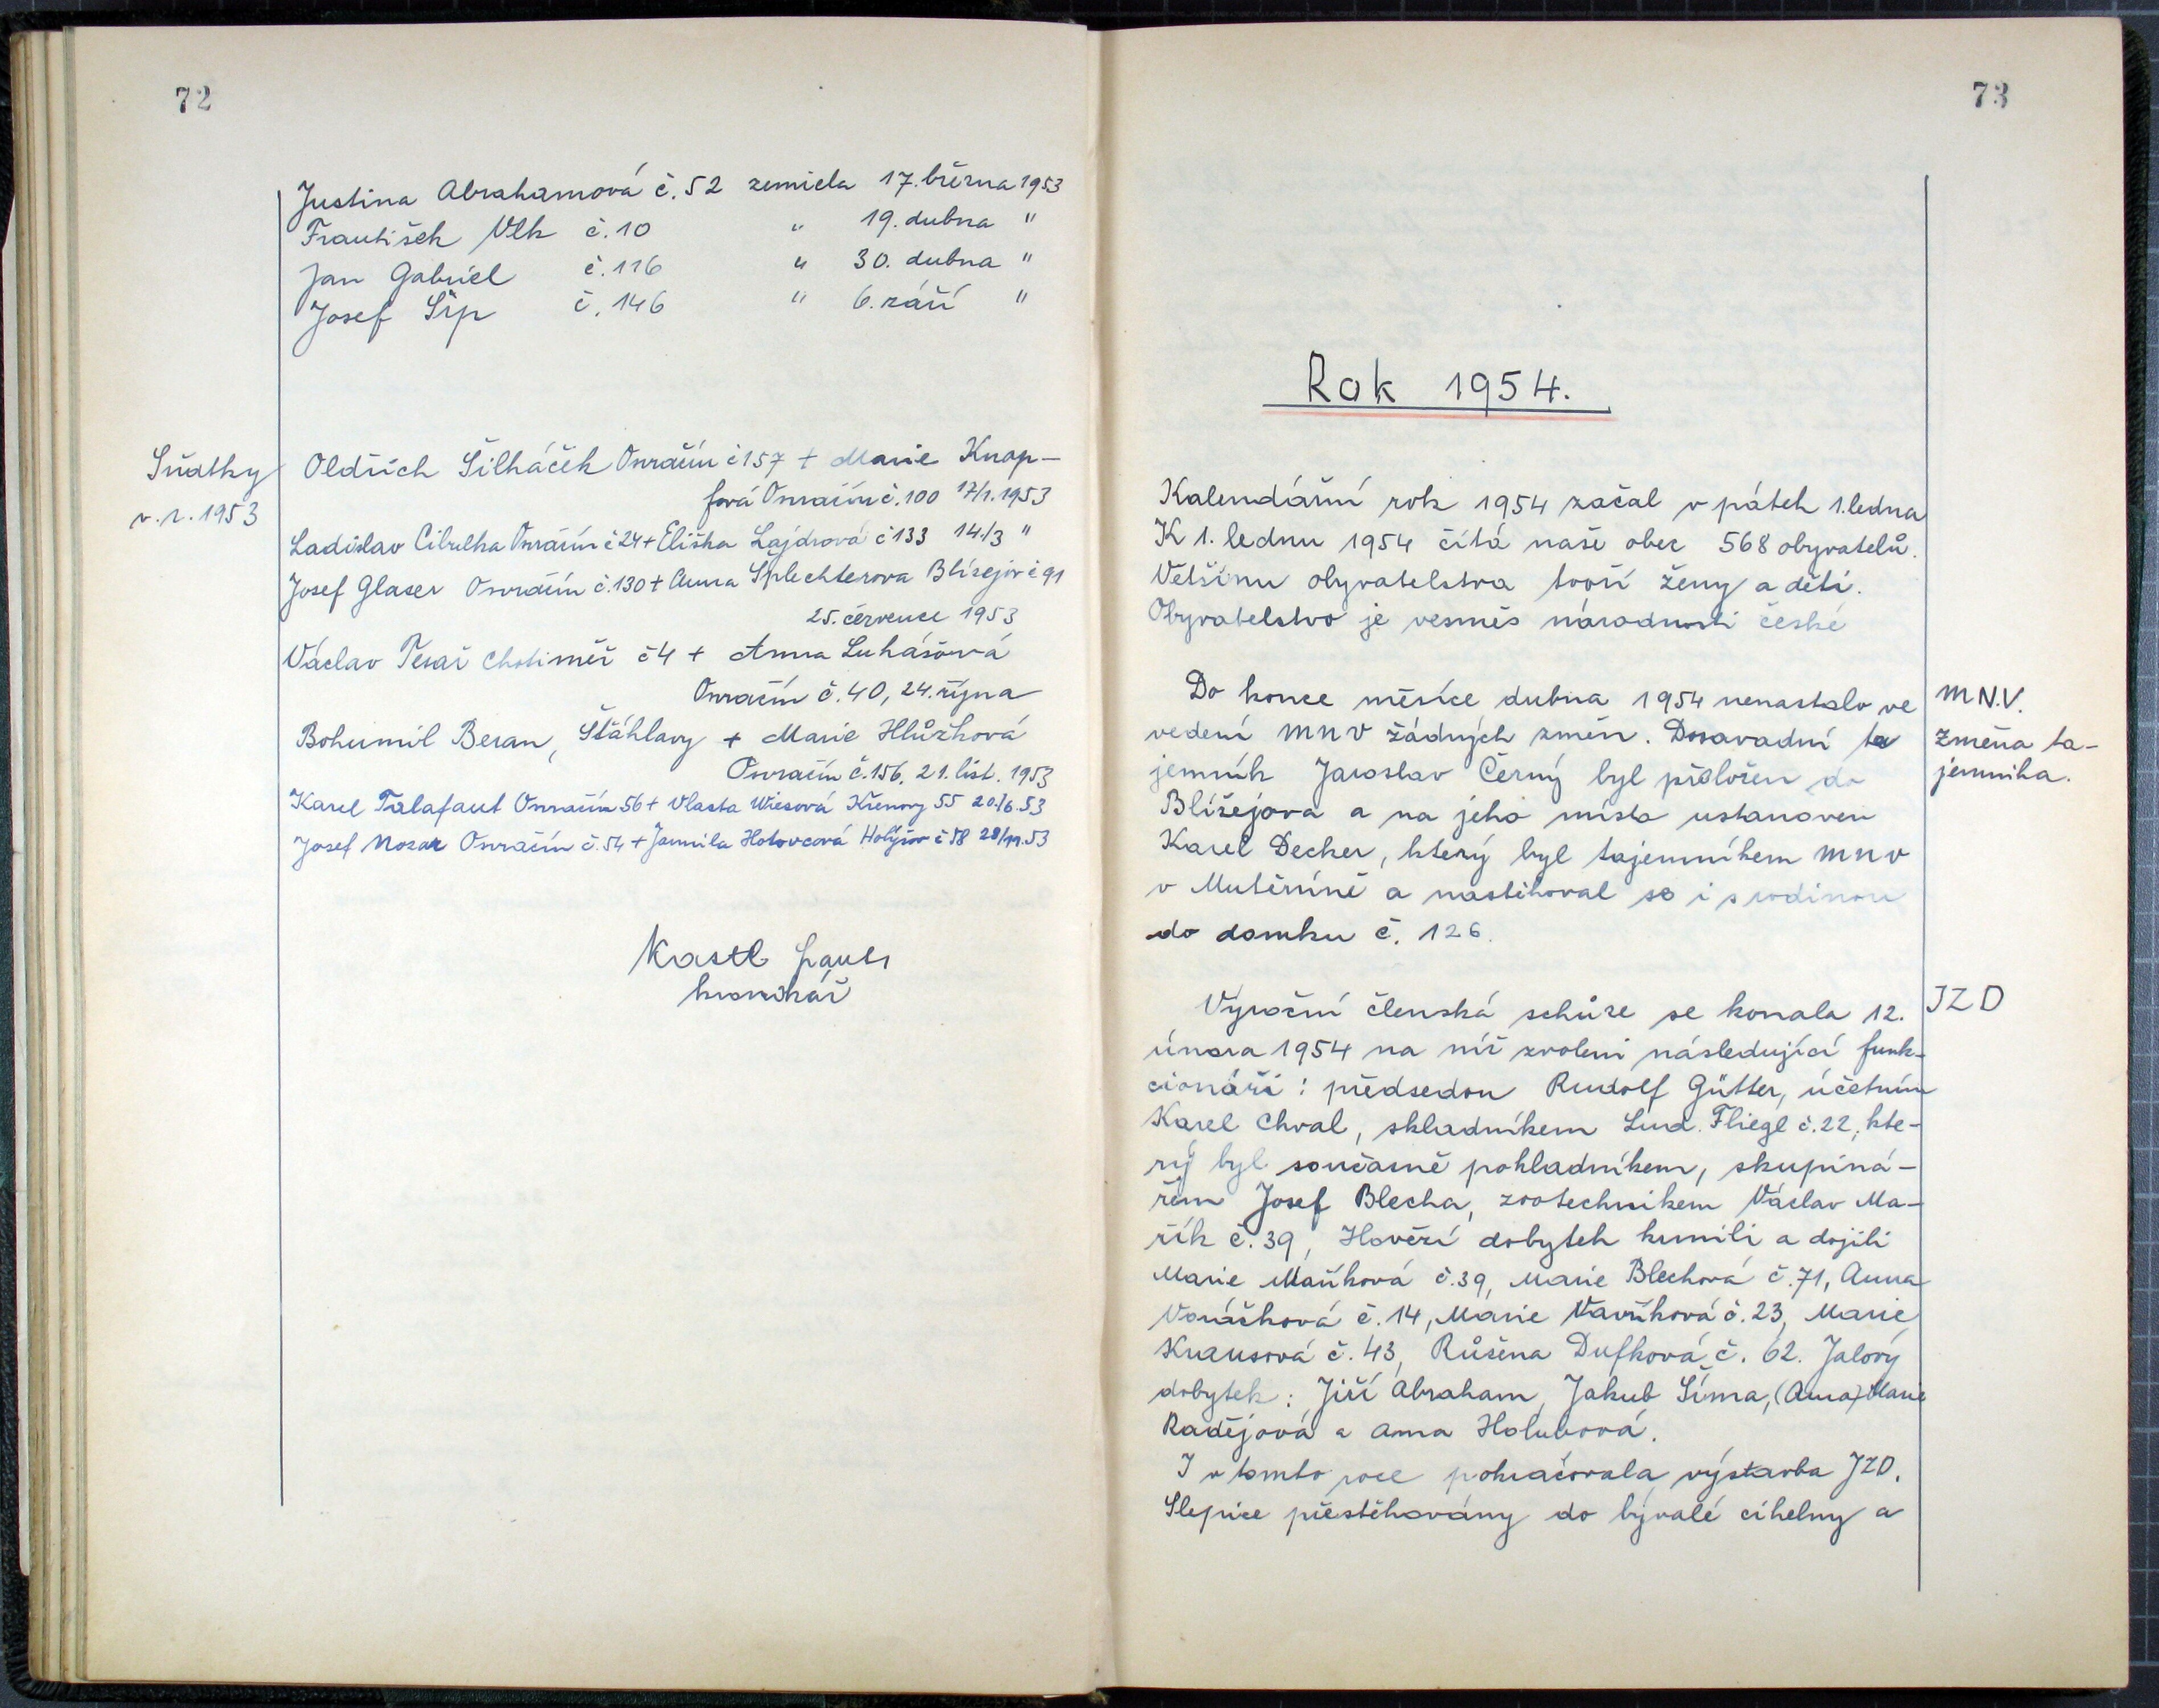 72
Justina Abrahamová č. 52 zemřela 17. března 1953
František Vlk č. 10 " 19. dubna "
Jan Gabriel č. 116 " 30. dubna "
Josef Šíp č. 146 " 6. září "
Sňatky
v. r. 1953
Oldřich Šilháček Osvračín č 157 + Marie Knop-
fová Osvračín č. 100 17/1. 1953
Ladislav Cibulka Osvračín č 24 + Eliška Lajdrová č 133 14./3 "
Josef Glaser Osvračín č. 130 + Anna Šplechterova Blížejov č 91
25. července 1953
Václav Tesař Chotiměř č 4 + Anna Lukášová
Osvračín č. 40, 24. října
Bohumil Beran, Šťáhlavy + Marie Hlůžková
Osvračín č. 156. 21. list. 1953
Karel Talafaut Osvračín 56 + Vlasta Wiesová Křenovy 55 20./6. 53
Josef Nozar Osvračín č. 54 + Jarmila Hotovcová Holýšov č 58 28/11. 53
Kastl
kronikář
73
Rok 1954.
Kalendářní rok 1954 začal v pátek 1. ledna
K 1. lednu 1954 čítá naše obec 568 obyvatelů.
Většinu obyvatelstva tvoří ženy a děti.
Obyvatelstvo je vesměs národnosti české
M N.V.
Změna ta-
jemníka.
Do konce měsíce dubna 1954 nenastalo ve
vedení MNV žádných změn. Dosavadní ta
jemník Jaroslav Černý byl přeložen do
Blížejova a na jeho místo ustanoven
Karel Decker, který byl tajemníkem MNV
v Mutěníně a nastěhoval se i s rodinou
do domku č. 126.
JZD
Výroční členská schůze se konala 12.
února 1954 na níž zvoleni následující funk-
cionáři: předsedou Rudolf Gütter, účetním
Karel Chval, skladníkem Lud. Fliegl č. 22, kte-
rý byl současně pokladníkem, skupiná-
řem Josef Blecha, zootechnikem Václav Ma-
řík č. 39, Hovězí dobytek krmili a dojili
Marie Maříková č. 39, Marie Blechová č. 71, Anna
Voráčková č. 14, Marie Vavříková č. 23, Marie
Krausová č. 43, Růžena Dufková č. 62. Jalový
dobytek: Jiří Abraham, Jakub Šíma, (Anna) Marie
Radějová a Anna Holubová.
I v tomto roce pokračovala výstavba JZD.
Slepice přestěhovány do bývalé cihelny a